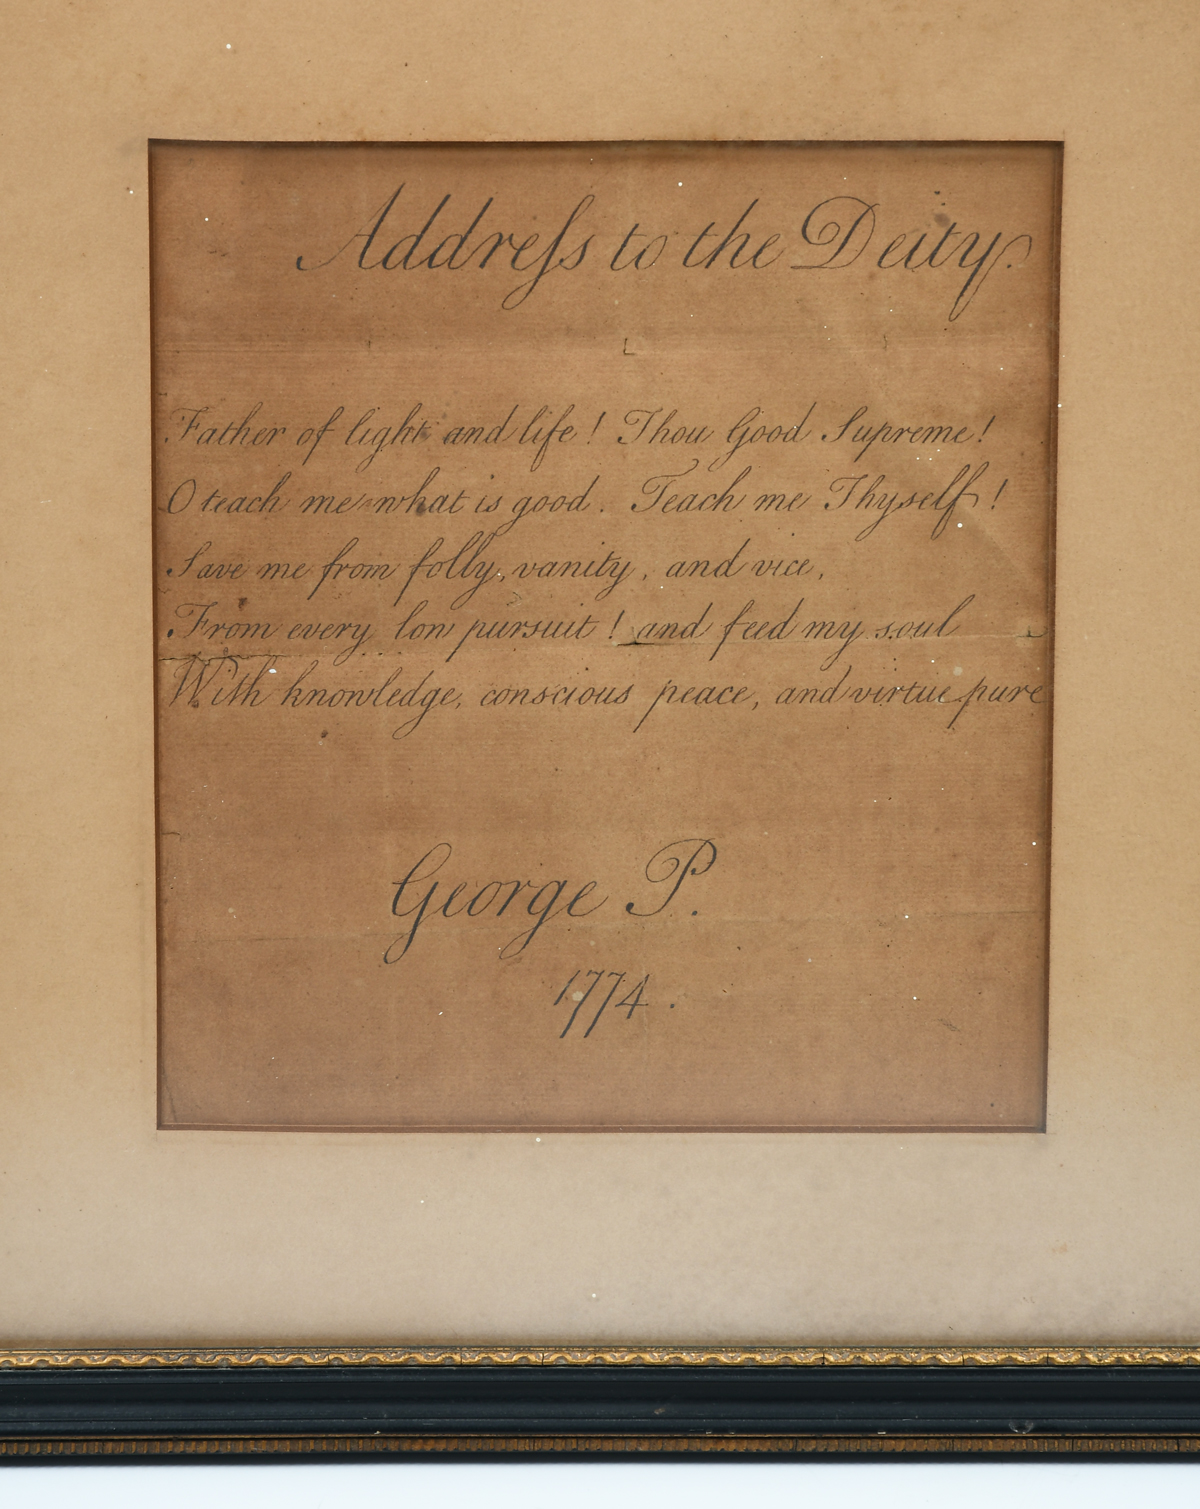 Addreſs to the Deity.
Father of light and life! Thou Good Supreme!
O teach me what is good. Teach me Thyself!
Save me from folly, vanity, and vice,
From every low pursuit! and feed my soul
With knowledge, conscious peace, and virtue pure
George P.
1774.